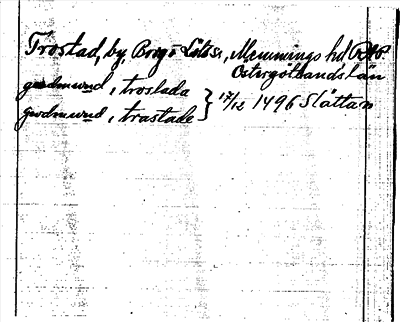 Trostad, by, Borgs Lösö s, Memmings hd
Östergötlands län
gudmund, troslada } 17/12 1496 Slättan
gudmund, trastade